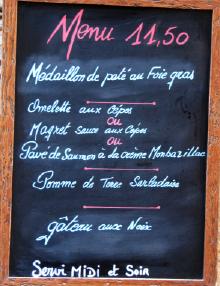 Menu 11,50
Médaillon de paté au Foie gras
Omelette aux Cèpes
OU
Magret sauce aux Cèpes
OU
Pavé de Saumon à la crème Monbazillac
Pomme de Terre Sarladaise
gâteau aux Noix
Servi MiDi et Soir